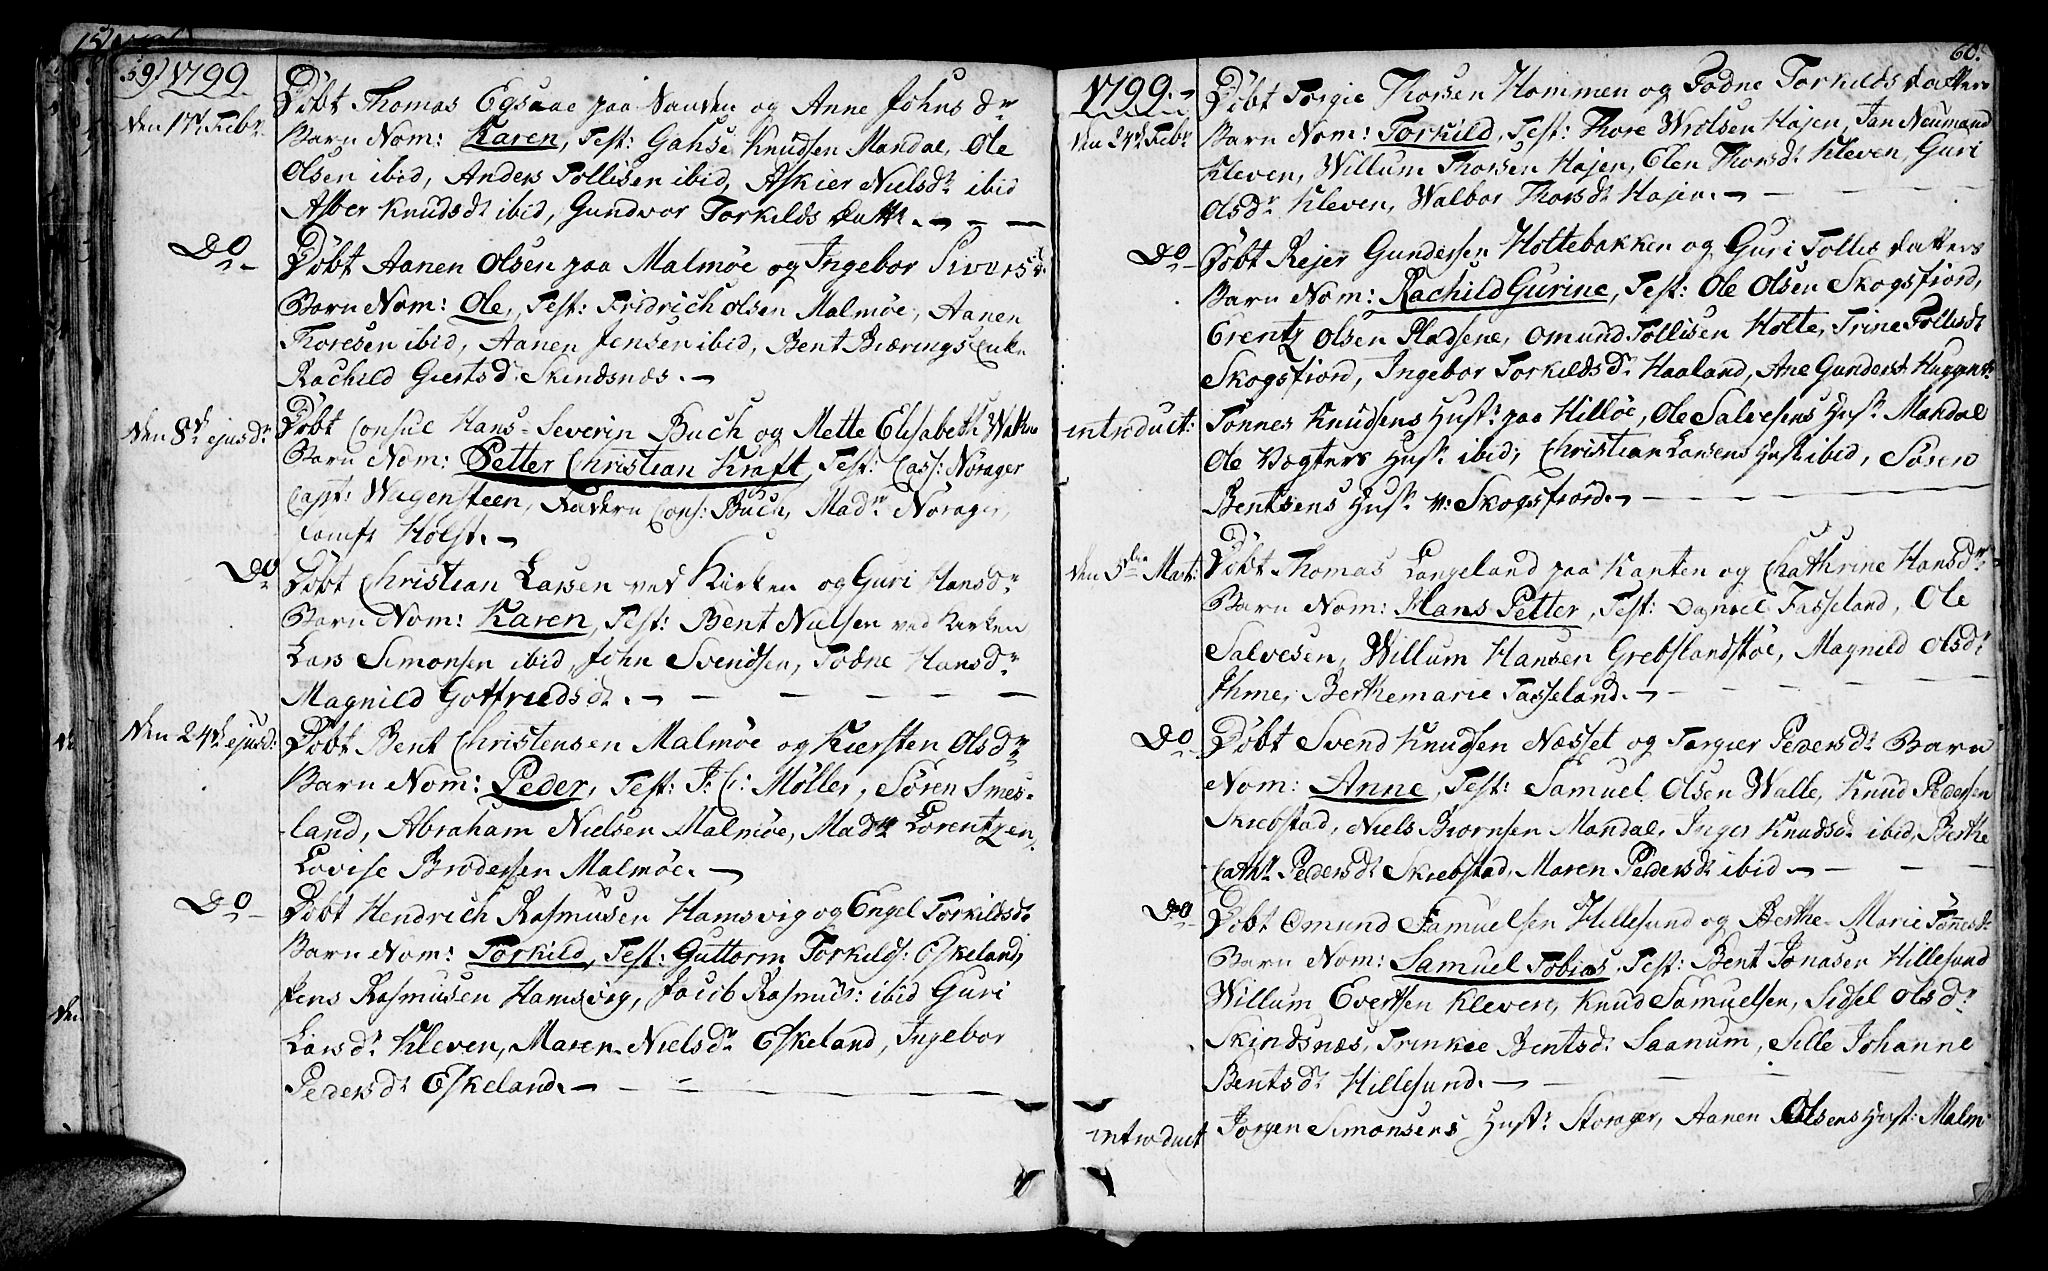 59) 1799
den 17d Febr.
Døbt Thomas Egsaae paa Sanden og Anne Johns dr
Barn Nom: Karen, Test: Gahse Knudsen Mandal, Ole
Olsen ibid, Anders Tollisen ibid, Askier Nielsdr ibid
Asber Knudsdr ibid, Gundvor Torkilds datt.
Do
Døbt Aanen Olsen paa Malmøe og Ingebor Sivers dr
Barn Nom: Ole, Test: Fridrich Olsen Malmøe, Aanen
Thoresen ibid, Aanen Jensen ibid, Bent Biærings Enke
Rachild Giertsd. Skindsnæs.
den 8d ejusdr
Døbt Consul Hans Severin Buch og Mette Elisabeth
Barn Nom: Petter Christian Kraft, Test: Cass: Nørager
Capt: Wugensteen, Cons: Buch, Madm Nørager,
Holst.
Do
Døbt Christian Larsen ved Kirken og Guri Hansdr
Barn Nom: Karen, Test: Bent Nielsen ved Kirken
Lars Simonsen ibid, John Svendsen, Todne Hansdr
Magnild Gottfriedsdr.
den 24d ejusd:
Døbt Bent Christensen Malmøe og Kiersten Olsdr
Barn Nom: Peder, Test: J: C: Møller, Søren Smes-
-land, Abraham Nielsen Malmøe, Madme Lorentzen,
Lovise Brodersen Malmøe.
Do
Døbt Hendrich Rasmusen Hamsvig og Engel Torkildsdr
Barn Nom: Torkild, Test: Guttorm Torkilds: Eskeland,
Jens Rasmusen Hamsvig, Jacob Rasmus: ibid Guri
Larsdr Kleven, Maren Nielsdr Eskeland, Ingebor
Pedersdr Eskeland.
60.
1799.
den 24d Febr
Døbt Torgie Thorsen Hommen og Todne Torkilds datters
Barn Nom: Torkild, Test: Thore Wrolsen Højen, Jan Neumand
Kleven, Willum Thorsen Højen, Elen Thorsdr Kleven, Guri
Olsdr Kleven, Walbor Thorsdr Højen.
Do
Døbt Rejer Gundersen Holtebakken og Guri Tollis datters
Barn Nom: Rachild Gurine, Test: Ole Olsen Skogsfiord,
Erentz Olsen Pladsene, Omund Tollisen Holte, Trine Tollisdr
Skogsfiord, Ingebor Torkildsdr Haaland, Ane Gundersdr
introduct:
Tønnes Knudsens Hustr paa Hilløe, Ole Salvesens Hustr Mandal
Ole Vogters Hustr ibid, Christian Larsens Hustr ibid, Søren
Bentsens Hustr v: Skogsfiord.
den 3die Mart:
Døbt Thomas Langeland paa Kanten og Chathrine Hansdr
Barn Nom: Hans Petter, Test: Daniel Tasseland, Ole
Salvesen, Willum Hansen Grebslandskøe, Magnild Olsdr
Ihme, Berthemarie Tasseland.
Do
Døbt Svend Knudsen Næsset og Torgier Pedersdr Barn
Nom: Anne, Test: Samuel Olsen Walle, Knud Pedersen
Skiebstad, Niels Biørnsen Mandal, Inger Knudsdr ibid, Berthe
Cathr Pedersdr Skiebstad, Maren Pedersdr ibid
Do
Døbt Omund Samuelsen Hillesund og Berthe Marie Tønnesdr
Barn Nom: Samuel Tobias, Test: Bent Jonasen Hillesund
Willum Evertsen Kleven, Knud Samuelsen, Sidsel Olsdr
Skindsnæs, Trinkie Bentsdr Saanum, Sille Johanne
Bentsdr Hillesund.
introduct
Jørgen Simonsens Hustr Storager, Aanen Olsens Hust: Malm: